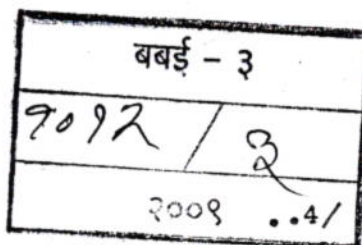 बबई - ३
१०१२ / ३
२००९ ..4/